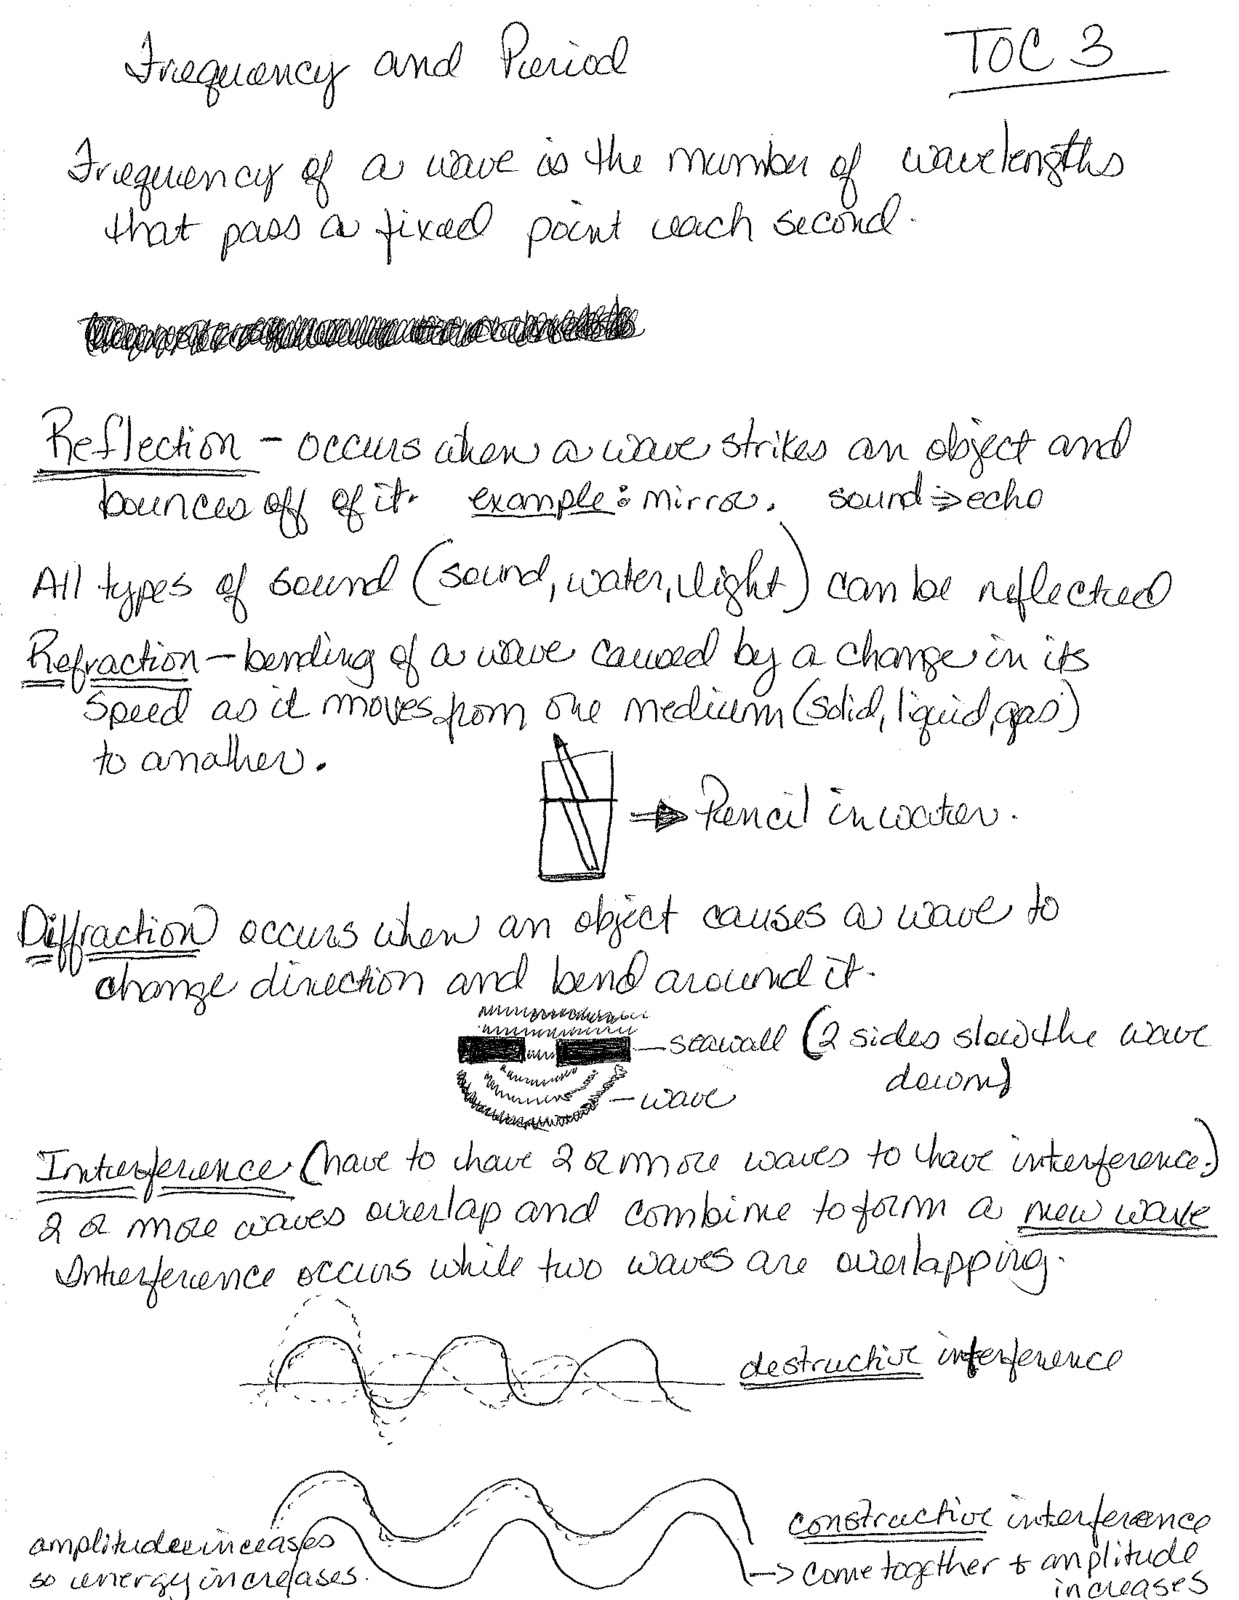 Frequency and Period
TOC 3
Frequency of a wave is the number of wavelengths
that pass a fixed point each second.
Reflection - occurs when a wave strikes an object and
bounces off of it. example: mirror. sound => echo
All types of sound (sound, water, light) can be reflected
Refraction - bending of a wave caused by a change in its
speed as it moves from one medium (solid, liquid, gas)
to another.
=> Pencil in water.
Diffraction occurs when an object causes a wave to
change direction and bend around it.
seawall (2 sides slow the wave
down)
wave
Interference (have to have 2 or more waves to have interference.)
2 or more waves overlap and combine to form a new wave
Interference occurs while two waves are overlapping.
destructive interference
constructive interference
amplitude increases
-> come together & amplitude
so energy increases.
increases